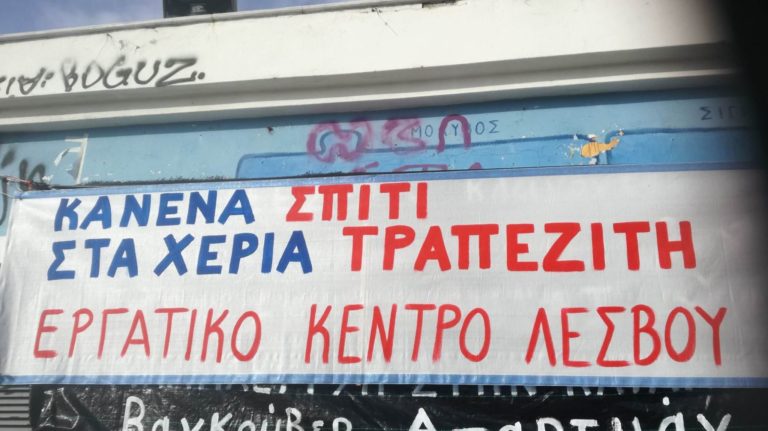 BOGUZ.
ΜΟΛΥΒΟΣ
ΣΙΓ
ΚΑΝΕΝΑ ΣΠΙΤΙ
ΣΤΑ ΧΕΡΙΑ ΤΡΑΠΕΖΙΤΗ
ΕΡΓΑΤΙΚΟ ΚΕΝΤΡΟ ΛΕΣΒΟΥ
Βανκούβερ Απαρτμάν